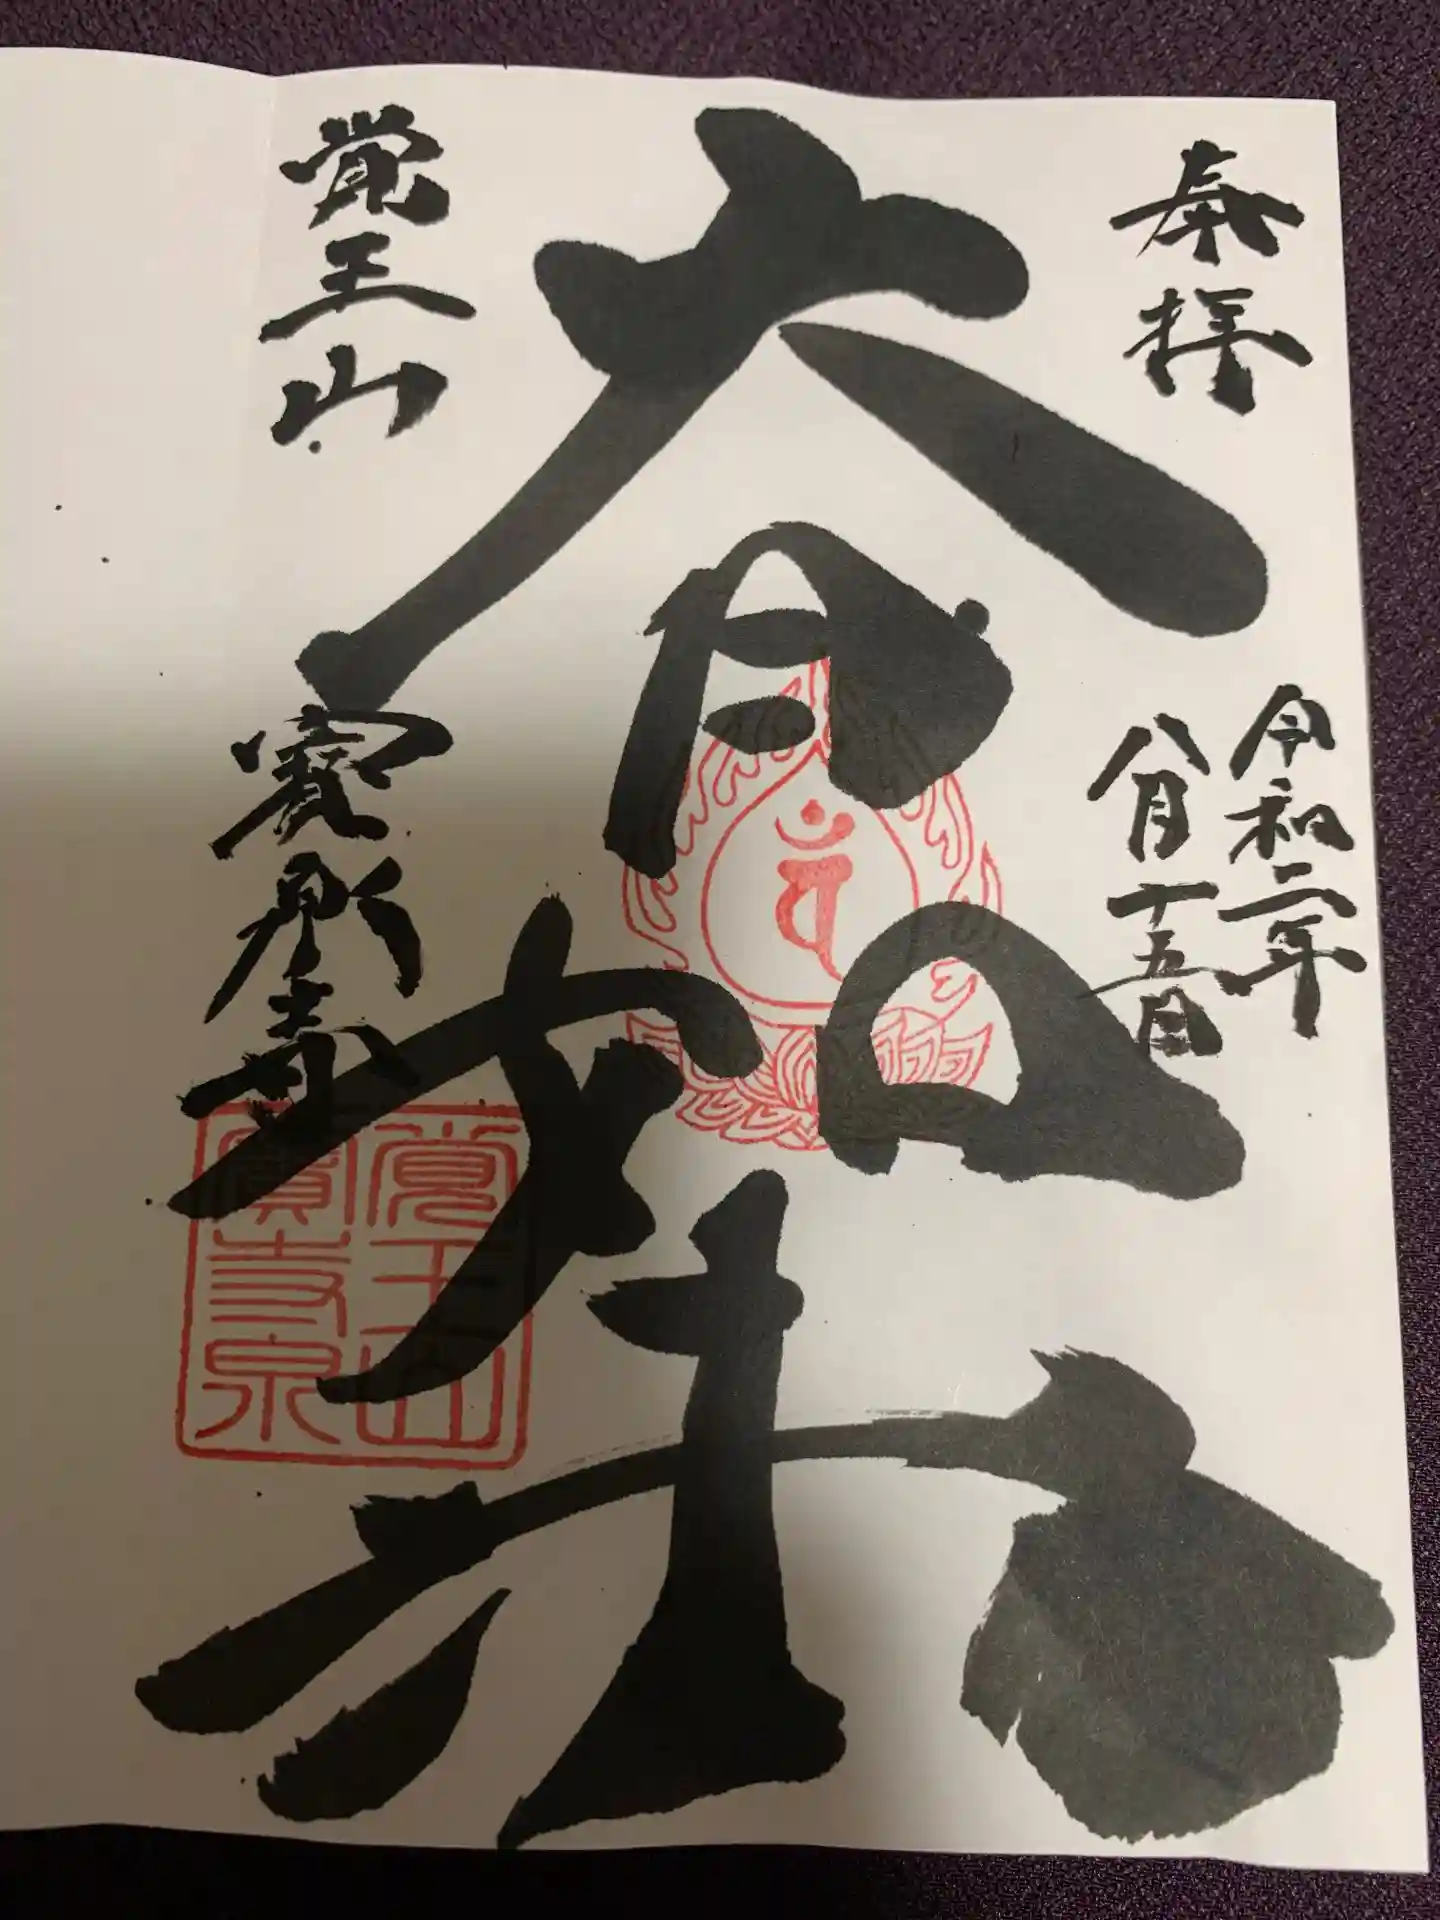 奉拝
令和二年
八月十五日
大日如来
覚王山
寳泉寺
覚王山
寳寺泉